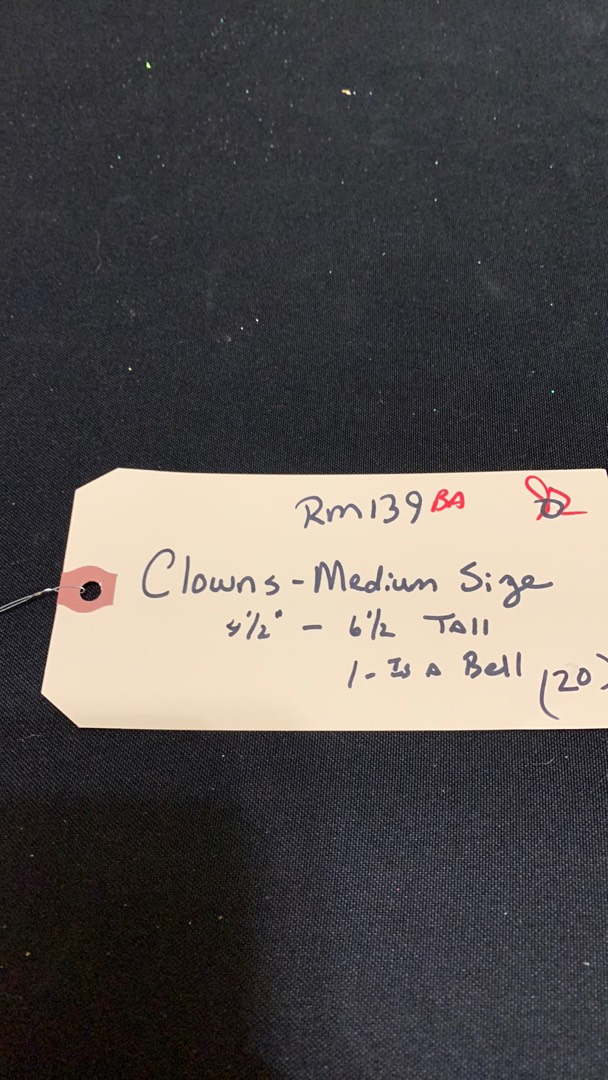 Rm139 BA
Clowns - Medium Size
4 1/2" - 6 1/2 Tall
1 - Is A Bell (20)